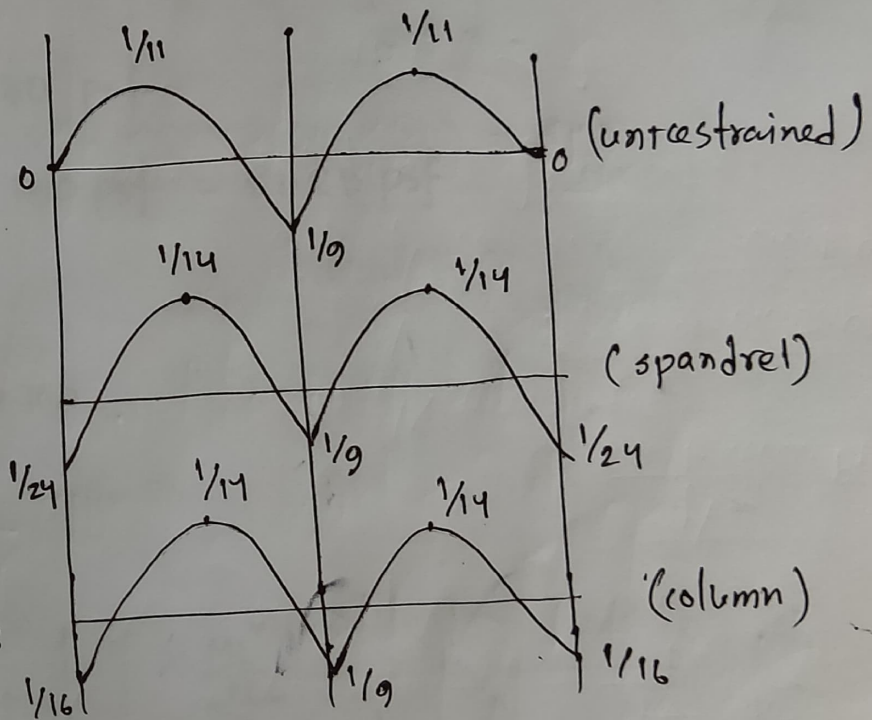 1/11 1/11
0 0 (unrestrained)
1/9
1/14 1/14
(spandrel)
1/24 1/9 1/24
1/14 1/14
(column)
1/16 1/9 1/16